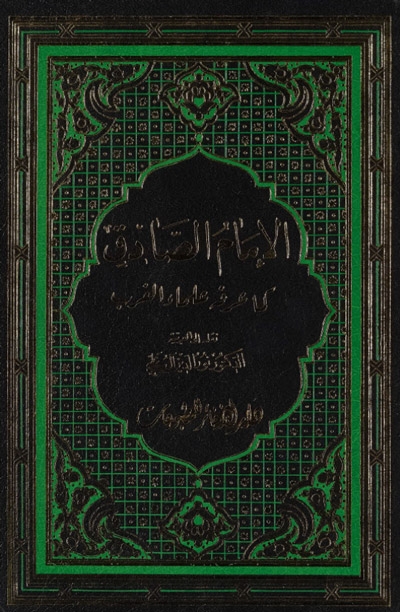 الإمام الصادق
كما عرفه علماء الغرب
نقله إلى العربية
الدكتور نور الدين آل علي